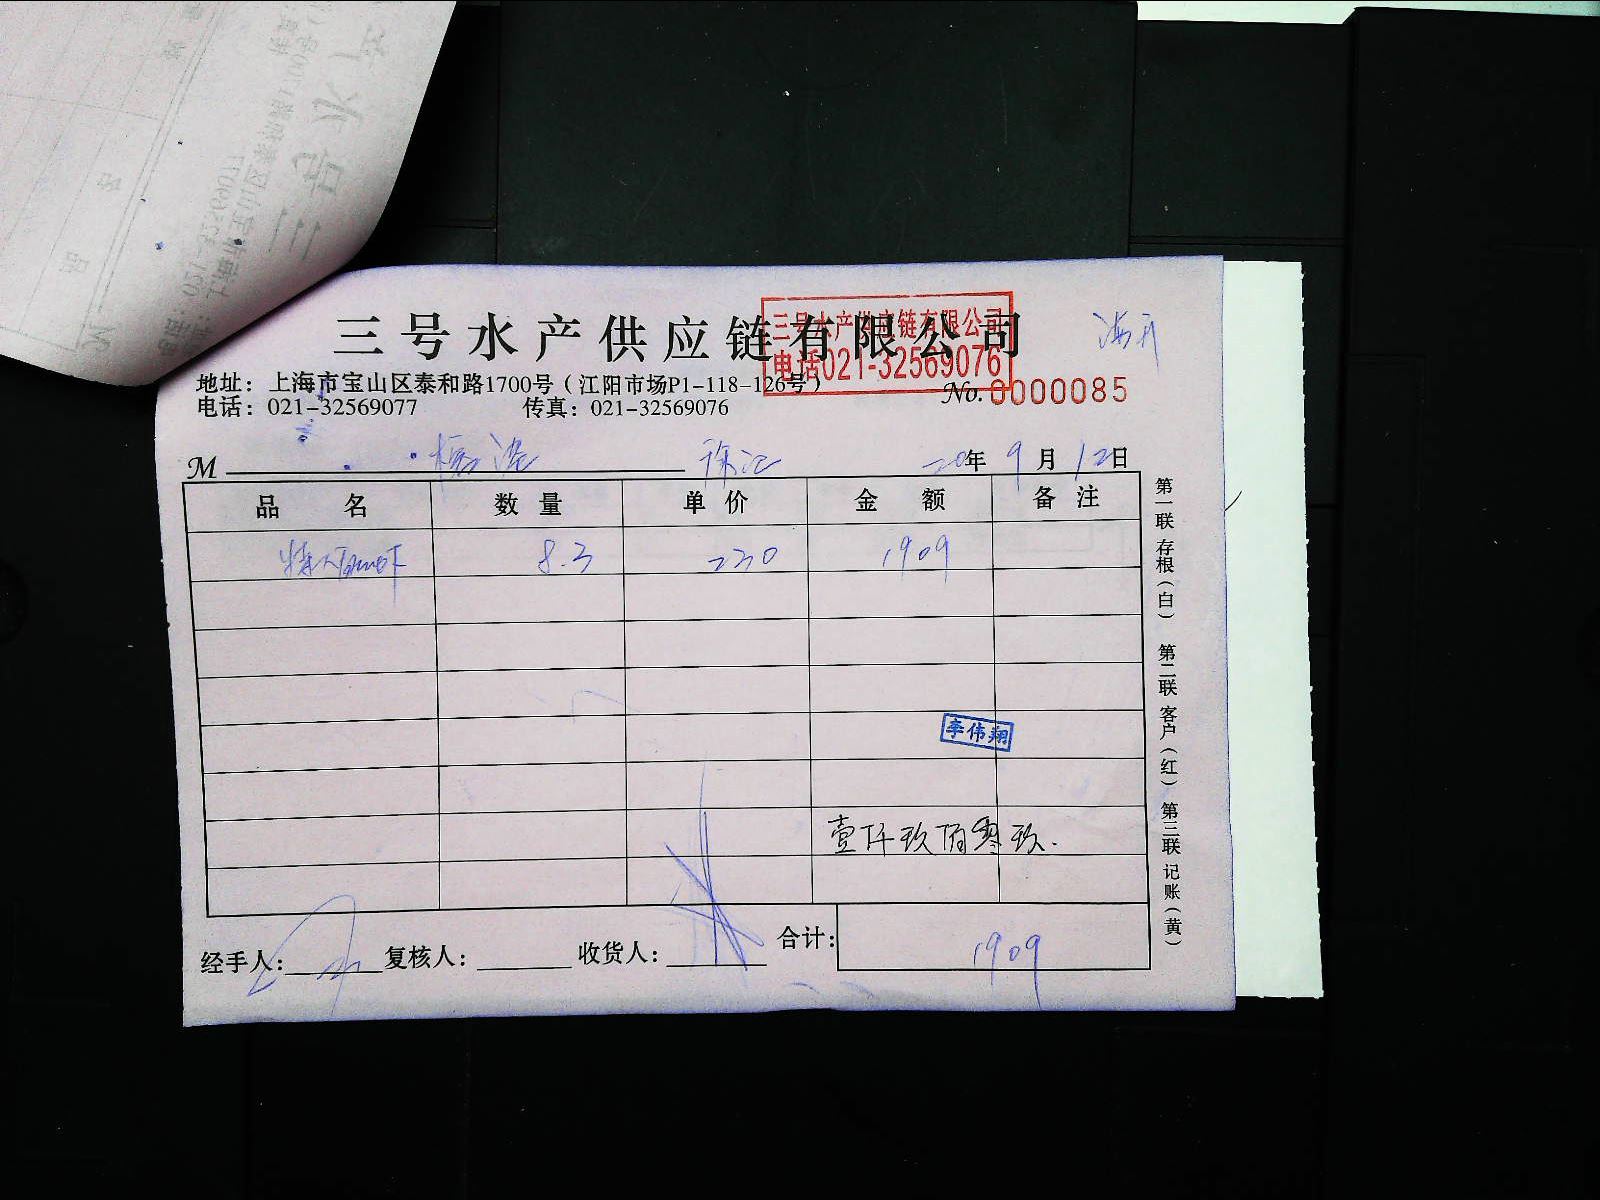 三号水产供应链有限公司
三号水产供应链有限公司
电话021-32569076
地址：上海市宝山区泰和路1700号（江阳市场P1-118-126号）
No. 0000085
电话：021-32569077 传真：021-32569076
M 徐汇 20年 9月 12日
品名 数量 单价 金额 备注
8.3 230 1909
李伟翔
壹仟玖佰零玖.
经手人： 复核人： 收货人： 合计： 1909
第一联 存根（白） 第二联 客户（红） 第三联 记账（黄）